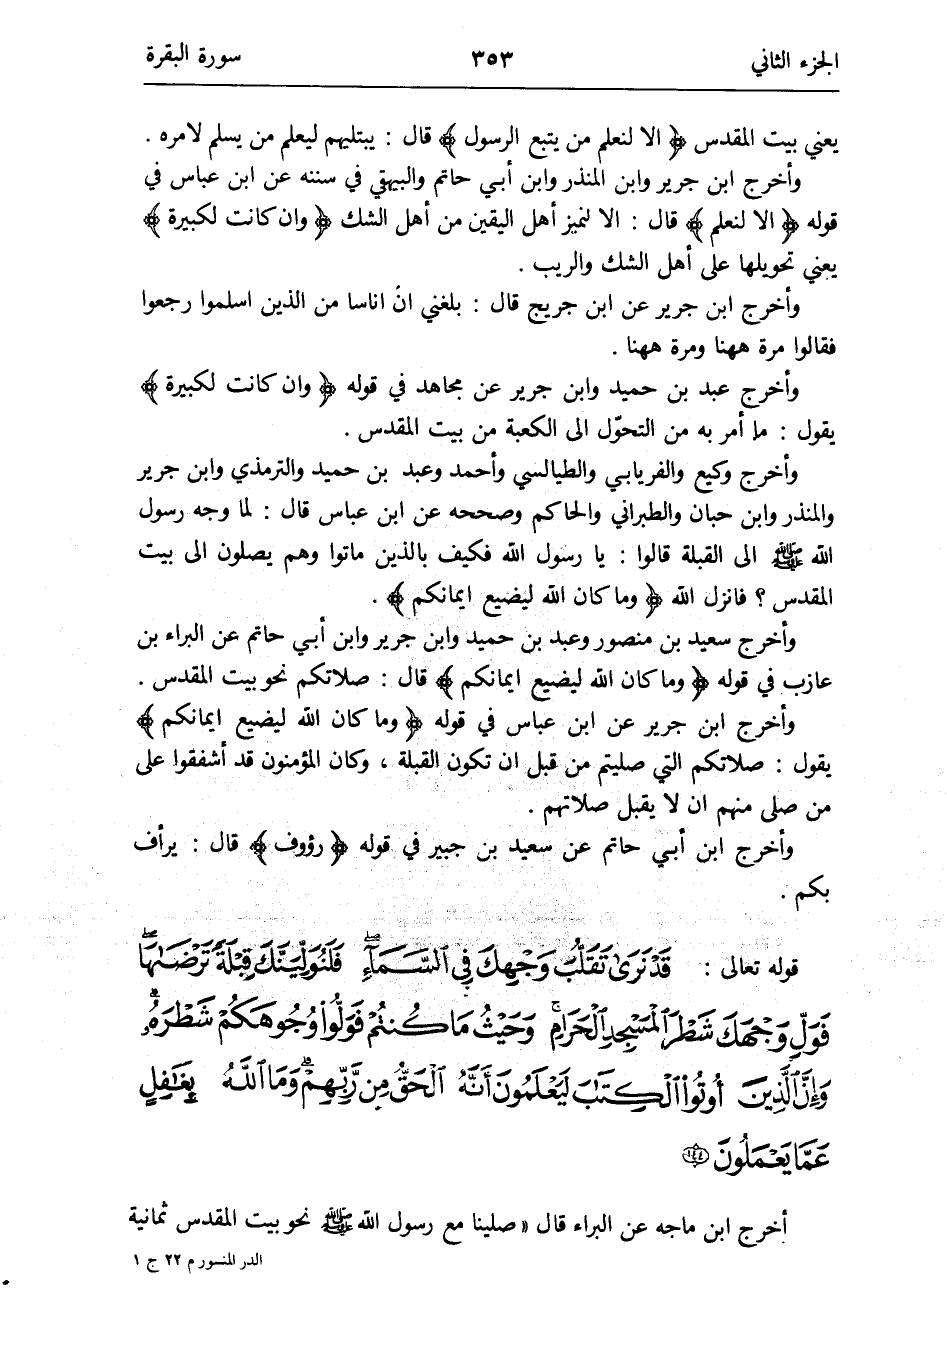 الجزء الثاني ٣٥٣ سورة البقرة
يعني بيت المقدس ﴿ الا لنعلم من يتبع الرسول ﴾ قال : يبتليهم ليعلم من يسلم لامره .
وأخرج ابن جرير وابن المنذر وابن أبي حاتم والبيهقي في سننه عن ابن عباس في
قوله ﴿ الا لنعلم ﴾ قال : الا لنميز أهل اليقين من أهل الشك ﴿ وان كانت لكبيرة ﴾
يعني تحويلها على أهل الشك والريب .
وأخرج ابن جرير عن ابن جريج قال : بلغني ان اناسا من الذين اسلموا رجعوا
فقالوا مرة ههنا ومرة ههنا .
وأخرج عبد بن حميد وابن جرير عن مجاهد في قوله ﴿ وان كانت لكبيرة ﴾
يقول : ما أمر به من التحوّل الى الكعبة من بيت المقدس .
وأخرج وكيع والفريابي والطيالسي وأحمد وعبد بن حميد والترمذي وابن جرير
والمنذر وابن حبان والطبراني والحاكم وصححه عن ابن عباس قال : لما وجه رسول
الله ﷺ الى القبلة قالوا : يا رسول الله فكيف بالذين ماتوا وهم يصلون الى بيت
المقدس ؟ فانزل الله ﴿ وما كان الله ليضيع ايمانكم ﴾ .
وأخرج سعيد بن منصور وعبد بن حميد وابن جرير وابن أبي حاتم عن البراء بن
عازب في قوله ﴿ وما كان الله ليضيع ايمانكم ﴾ قال : صلاتكم نحو بيت المقدس .
وأخرج ابن جرير عن ابن عباس في قوله ﴿ وما كان الله ليضيع ايمانكم ﴾
يقول : صلاتكم التي صليتم من قبل ان تكون القبلة ، وكان المؤمنون قد أشفقوا على
من صلى منهم ان لا يقبل صلاتهم .
وأخرج ابن أبي حاتم عن سعيد بن جبير في قوله ﴿ رؤوف ﴾ قال : يرأف
بكم .
قوله تعالى : قَدْ نَرَىٰ تَقَلُّبَ وَجْهِكَ فِي ٱلسَّمَآءِۖ فَلَنُوَلِّيَنَّكَ قِبْلَةً تَرْضَىٰهَاۚ
فَوَلِّ وَجْهَكَ شَطْرَ ٱلْمَسْجِدِ ٱلْحَرَامِۚ وَحَيْثُ مَا كُنتُمْ فَوَلُّوا۟ وُجُوهَكُمْ شَطْرَهُۥۗ
وَإِنَّ ٱلَّذِينَ أُوتُوا۟ ٱلْكِتَٰبَ لَيَعْلَمُونَ أَنَّهُ ٱلْحَقُّ مِن رَّبِّهِمْۗ وَمَا ٱللَّهُ بِغَٰفِلٍ
عَمَّا يَعْمَلُونَ ١٤٤
أخرج ابن ماجه عن البراء قال « صلينا مع رسول الله ﷺ نحو بيت المقدس ثمانية
الدر المنسور م ٢٢ ج ١